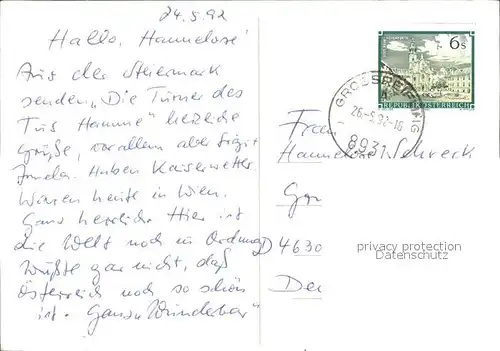 24.5.92
Hallo, Hannelore!
Aus der Steiermark
senden „Die Turner des
Tus Hamme" herzliche
Grüße, vor allem aber
Haben Kaiserwetter.
Waren heute in Wien.
Ganz herrlich. Hier ist
die Welt noch in Ordnung
Wußte gar nicht, daß
Österreich noch so schön
ist. Ganz „Wunderbar"
6 S
REPUBLIK ÖSTERREICH
GROSSREIFLING
26.-5.92-16
8931
Frau
Hannelore Schreck
D 4630
privacy protection
Datenschutz